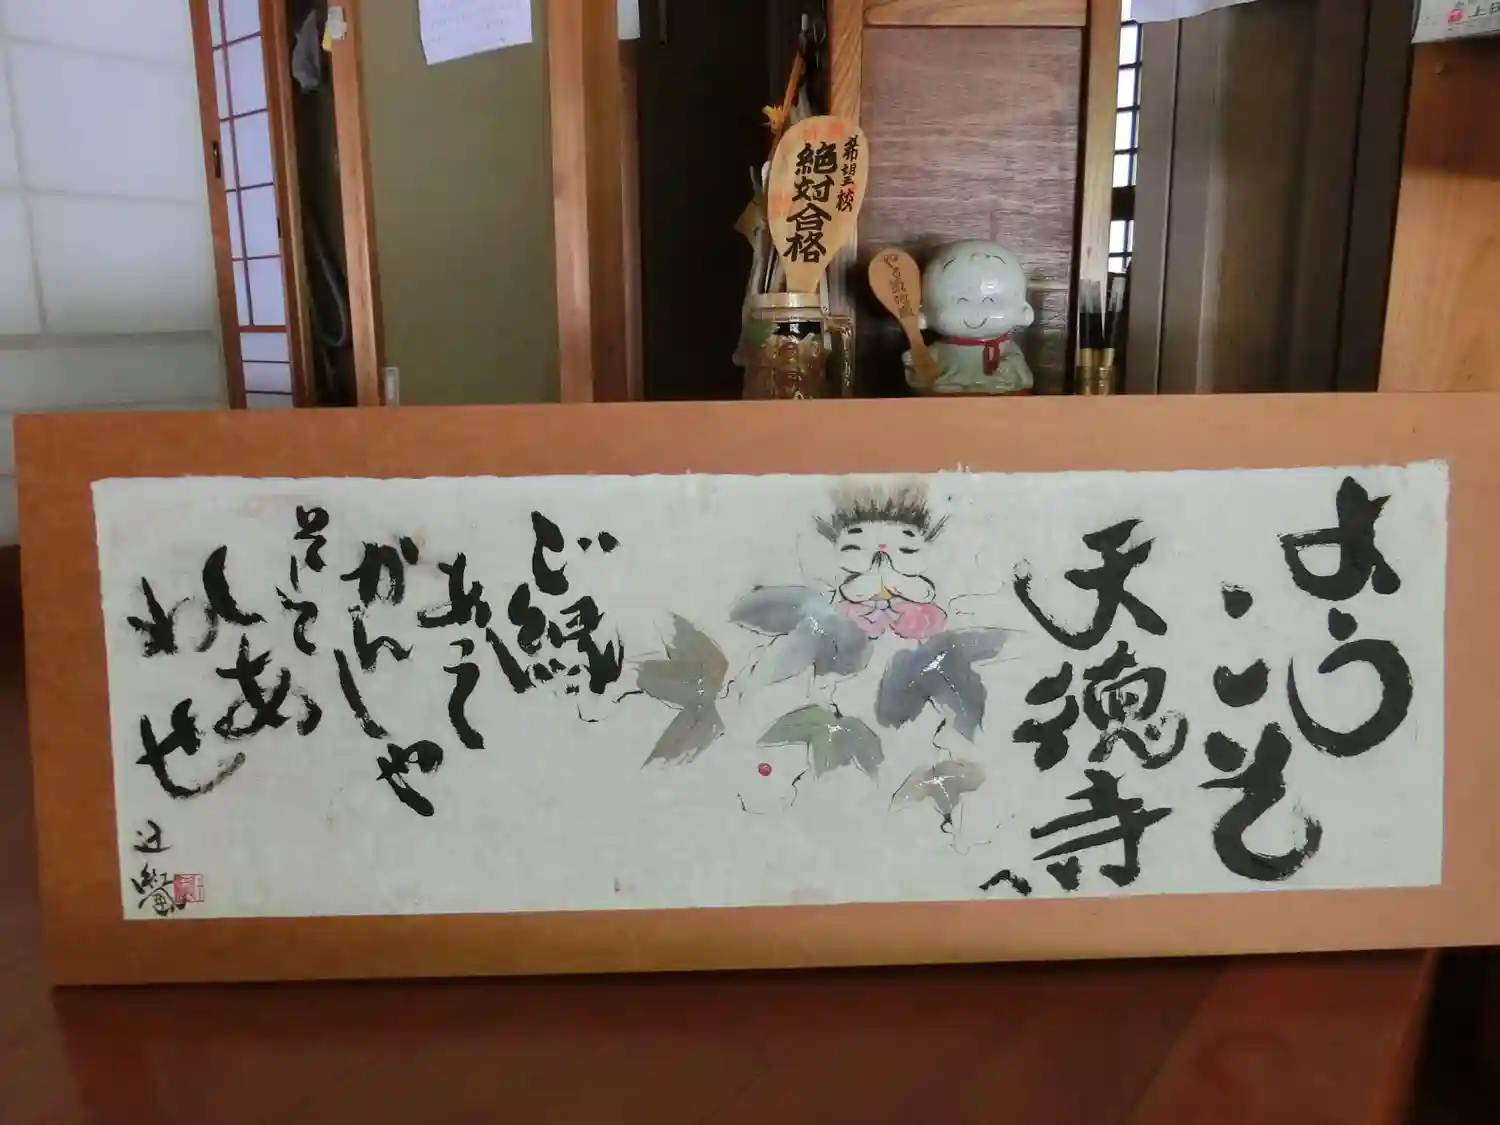 希望校
絶対合格
よう
こそ
天徳寺
へ
ご縁
あえて
かんしゃ
そして
しあ
わせ